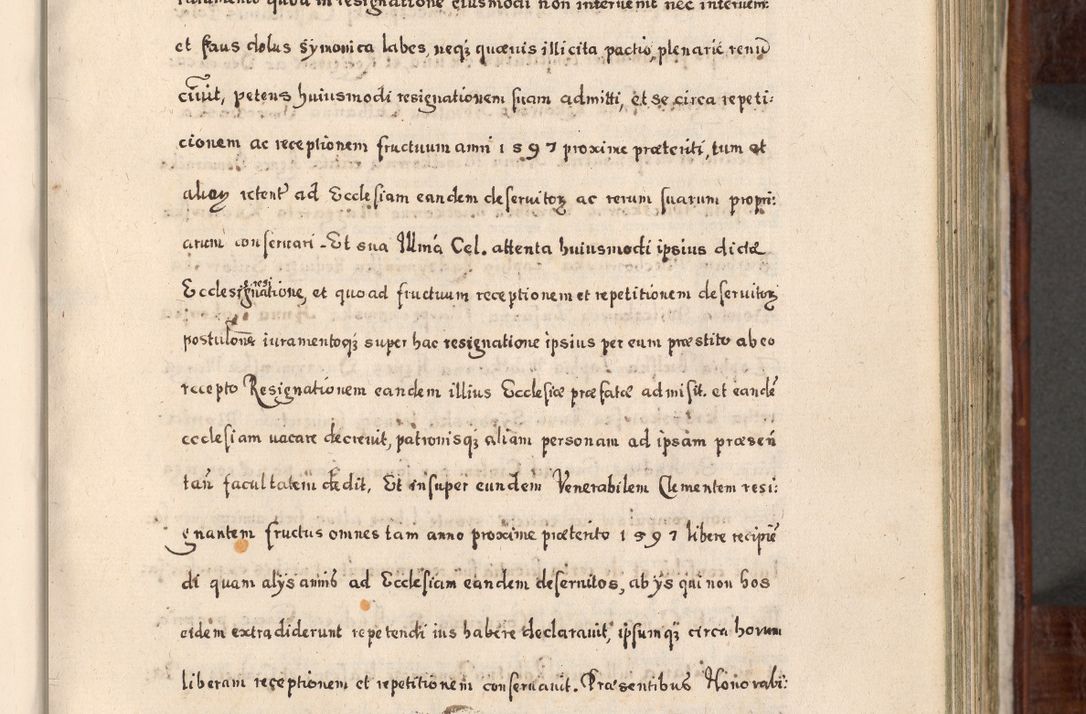 iuramento quod in resignatione eiusmodi non intervenit nec interveni:
et fraus dolus symonica labes, neq; quævis illicita pactio, plenarie renū
ciavit, petens huiusmodi resignationem suam admitti, et se circa repeti:
cionem ac receptionem fructuum anni 1597 proxime præteriti, tum et
retent ad Ecclesiam eandem deservitoꝝ ac rerum suarum propri:
arum conservari. Et sua Illmā Cel. attenta huiusmodi ipsius dictæ
resignatione, et quoad fructuum receptionem et repetitionem deservitoꝝ
postulōne iuramentoq; super hac resignatione ipsius per eum præstito ab eo
recepto Resignationem eandem illius Ecclesiæ præfatæ admisit. et eandē
ecclesiam vacare decrevit, patronisq; aliam personam ad ipsam præseñ
tañ facultatem dedit, Et insuper eundem Venerabilem Clementem resi:
gnantem fructus omnes tam anno proxime præterito 1597 libere recipiē
di quam alÿs annis ad Ecclesiam eandem deservitos, ab ÿs qui non hos
eidem extradiderunt repetendi ius habere declaravit, ipsumq; circa horum
liberam receptionem et repetitionem conservavit. Præsentibus Honorabi: